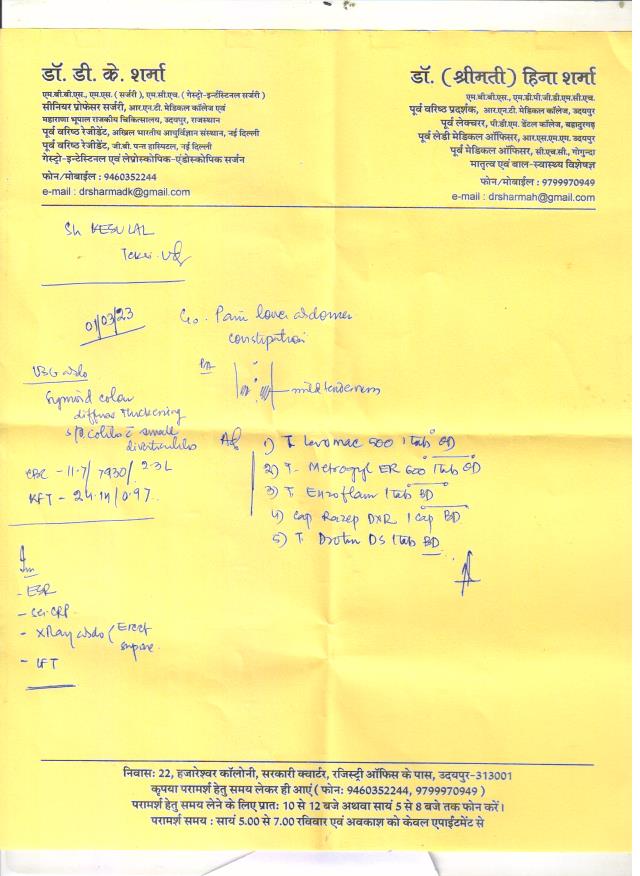 डॉ. डी. के. शर्मा
एम.बी.बी.एस., एम.एस. ( सर्जरी ), एम.सी.एच. (गेस्ट्रो-इन्टेंस्टिनल सर्जरी )
सीनियर प्रोफेसर सर्जरी, आर.एन.टी. मेडिकल कॉलेज एवं
महाराणा भूपाल राजकीय चिकित्सालय, उदयपुर, राजस्थान
पूर्व वरिष्ठ रेजीडेंट, अखिल भारतीय आयुर्विज्ञान संस्थान, नई दिल्ली
पूर्व वरिष्ठ रेजीडेंट, जी.बी. पन्त हास्पिटल, नई दिल्ली
गेस्ट्रो-इण्टेस्टिनल एवं लेप्रोस्कोपिक-एंडोस्कोपिक सर्जन
फोन/मोबाईल : 9460352244
e-mail : drsharmadk@gmail.com
डॉ. (श्रीमती) हिना शर्मा
एम.बी.बी.एस., एम.डी.पी.जी.डी.एम.सी.एच.
पूर्व वरिष्ठ प्रदर्शक, आर.एन.टी. मेडिकल कॉलेज, उदयपुर
पूर्व लेक्चरर, पी.डी.एम. डेंटल कॉलेज, बहादुरगढ़
पूर्व लेडी मेडिकल ऑफिसर, आर.एस.एम.एम. उदयपुर
पूर्व मेडिकल ऑफिसर, सी.एच.सी., गोगुन्दा
मातृत्व एवं बाल-स्वास्थ्य विशेषज्ञ
फोन/मोबाईल : 9799970949
e-mail : drsharmah@gmail.com
Sh KESULAL
01/03/23
C/o. Pain lower abdomen
constipation
mild tenderness
USG abdo
Sigmoid colon
diffuse thickening
s/o colitis c small
diverticulos
CBC - 11.7/ 7930/ 2.3L
KFT - 24.14/0.97
Adv
1) T. Levomac 500 1 tab OD
2) T- Metrogyl ER 600 1 tab OD
3) T. Enzoflam 1 tab BD
4) Cap Razep DXR 1 cap BD
5) T Drotin DS 1 tab BD
Inv
- ESR
- Se. CRP
- XRay abdo (Erect
supine
- LFT
निवास: 22, हजारेश्वर कॉलोनी, सरकारी क्वार्टर, रजिस्ट्री ऑफिस के पास, उदयपुर-313001
कृपया परामर्श हेतु समय लेकर ही आएं ( फोन: 9460352244, 9799970949 )
परामर्श हेतु समय लेने के लिए प्रात: 10 से 12 बजे अथवा सायं 5 से 8 बजे तक फोन करें।
परामर्श समय : सायं 5.00 से 7.00 रविवार एवं अवकाश को केवल एपाईंटमेंट से